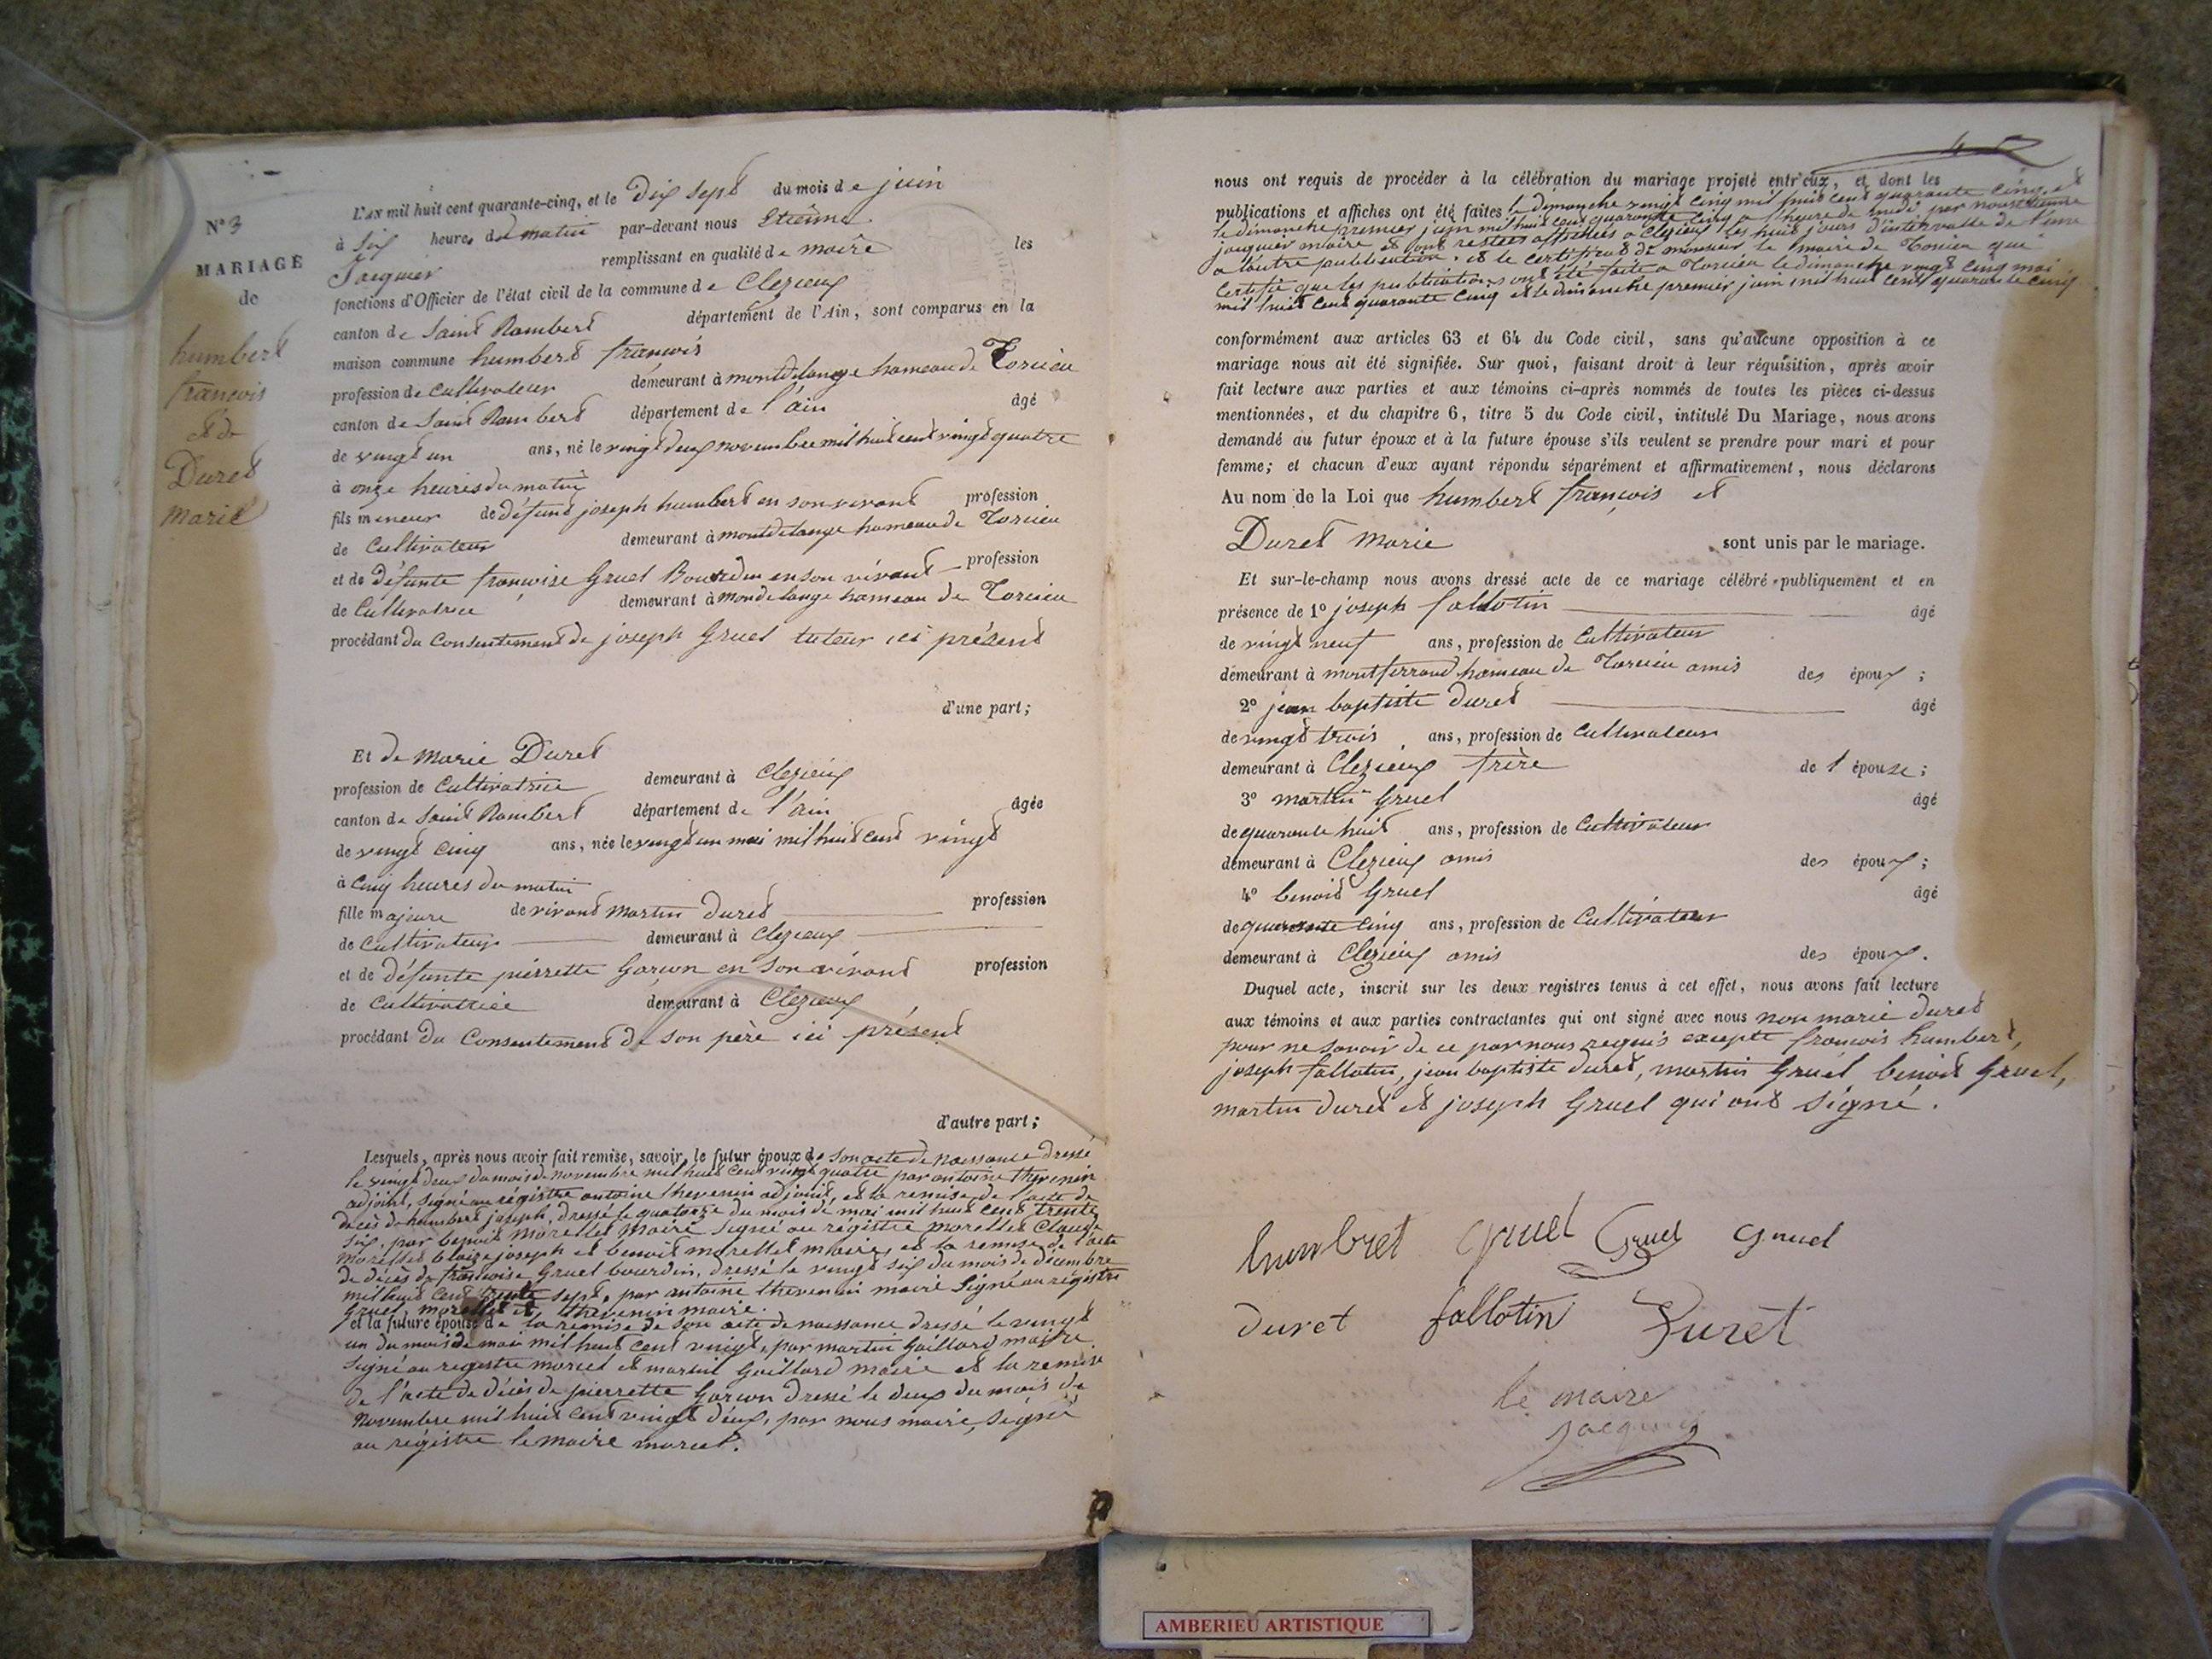 N° 3
MARIAGE
de
humbert
francois
et de
Duret
marie
L'AN mil huit cent quarante-cinq, et le Dix sept du mois de juin
à six heures du matin par-devant nous Etienne
Jacquier remplissant en qualité de maire les
fonctions d'Officier de l'état civil de la commune de Clezieux
canton de Saint Rambert département de l'Ain, sont comparus en la
maison commune humbert françois
profession de cultivateur demeurant à montdelange hameau de Torcieu
canton de Saint Rambert département de l'ain âgé
de vingt un ans, né le vingt deux novembre mil huit cent vingt quatre
à onze heures du matin
fils mineur de défunt joseph humbert en son vivant profession
de Cultivateur demeurant à montdelange hameau de Torcieu
et de défunte françoise Gruel Bourdin en son vivant profession
de Cultivatrice demeurant à mondelange hameau de Torcieu
procédant du Consentement de joseph Gruel tuteur ici présent
d'une part;
Et de marie Duret
profession de Cultivatrice demeurant à Clezieux
canton de Saint Rambert département de l'ain âgée
de vingt cinq ans, née le vingt un mai mil huit cent vingt
à cinq heures du matin
fille majeure de vivant martin duret profession
de Cultivateur demeurant à Clezieux
et de défunte pierrette Garçon en son vivant profession
de Cultivatrice demeurant à Clezieux
procédant du Consentement de son père ici présent
d'autre part;
Lesquels, après nous avoir fait remise, savoir, le futur époux de son acte de naissance dressé
le vingt deux du mois de novembre mil huit cent vingt quatre par antoine thevenin
adjoint, signé au régistre antoine thevenin adjoint, et la remise de l'acte de
décès de humbert joseph, dressé le quatorze du mois de mai mil huit cent trente
six, par benoit morellet maire signé au régistre morellet Claude
morellet blaize joseph et benoit morellet maire, et la remise de l'acte
de décès de françoise Gruel bourdin, dressé le vingt six du mois de décembre
mil huit cent trente sept, par antoine thevenin maire signé au régistre
Gruel, morellet et thevenin maire.
et la future épouse de la remise de son acte de naissance dressé le vingt
un du mois de mai mil huit cent vingt, par martin Gaillard maire
signé au registre morcel et martin Gaillard maire et la remise
de l'acte de décès de pierrette Garçon dressé le deux du mois de
novembre mil huit cent vingt deux, par nous maire, signé
au régistre le maire morcel.
nous ont requis de procéder à la célébration du mariage projeté entr'eux, et dont les
publications et affiches ont été faites le dimanche vingt cinq mil huit cent quarante cinq, et
le dimanche premier juin mil huit cent quarante cinq a l'heure de midi par nous etienne
jacquier maire et ont restées affichées a Clezieux les huit jours d'intervalle de l'une
a l'autre publication. et le certificat de monsieur le maire de Torcieu qui
certifie que les publications ont été faite a Torcieu le dimanche vingt cinq mai
mil huit cent quarante cinq et le dimanche premier juin mil huit cent quarante cinq
conformément aux articles 63 et 64 du Code civil, sans qu'aucune opposition à ce
mariage nous ait été signifiée. Sur quoi, faisant droit à leur réquisition, après avoir
fait lecture aux parties et aux témoins ci-après nommés de toutes les pièces ci-dessus
mentionnées, et du chapitre 6, titre 5 du Code civil, intitulé Du Mariage, nous avons
demandé au futur époux et à la future épouse s'ils veulent se prendre pour mari et pour
femme; et chacun d'eux ayant répondu séparément et affirmativement, nous déclarons
Au nom de la Loi que humbert françois et
Duret marie sont unis par le mariage.
Et sur-le-champ nous avons dressé acte de ce mariage célébré publiquement et en
présence de 1° joseph fallotin âgé
de vingt neuf ans, profession de Cultivateur
demeurant à montferrand hameau de Torcieu amis des époux;
2° jean baptiste duret âgé
de vingt trois ans, profession de Cultivateur
demeurant à Clezieux frère de l'épouse;
3° martin Gruel âgé
de quarante huit ans, profession de Cultivateur
demeurant à Clezieux amis des époux;
4° benoit Gruel âgé
de quarante cinq ans, profession de Cultivateur
demeurant à Clezieux amis des époux.
Duquel acte, inscrit sur les deux registres tenus à cet effet, nous avons fait lecture
aux témoins et aux parties contractantes qui ont signé avec nous non marie duret
pour ne savoir de ce par nous requis excepté francois humbert,
joseph fallotin, jean baptiste duret, martin Gruel, benoit Gruel,
martin duret et joseph Gruel qui ont signé.
humbret gruel Gruel gruel
duret fallotin Duret
le maire
jacquier
AMBERIEU ARTISTIQUE